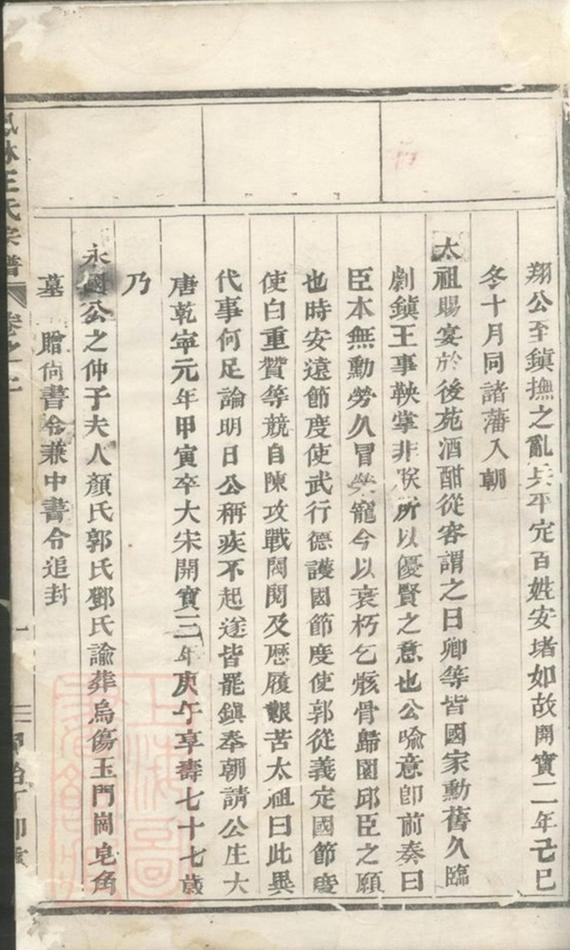 翔公至鎮撫之亂兵平定百姓安堵如故開寶二年己巳
冬十月同諸藩入朝
太祖賜宴於後苑酒酣從容謂之曰卿等皆國家勳舊久臨
劇鎮王事鞅掌非朕所以優賢之意也公喻意卽前奏曰
臣本無勳勞久冒榮寵今以衰朽乞骸骨歸園邱臣之願
也時安遠節度使武行德護國節度使郭從義定國節度
使白重贊等競自陳攻戰閥閱及歷履艱苦太祖曰此異
代事何足論明日公稱疾不起遂皆罷鎮奉朝請公生大
唐乾寧元年甲寅卒大宋開寶三年庚午享壽七十七歲
乃
永國公之仲子夫人顏氏郭氏鄧氏諭葬烏傷玉門崗皂角
墓 贈尙書令兼中書令追封
林王氏宗譜 卷之二